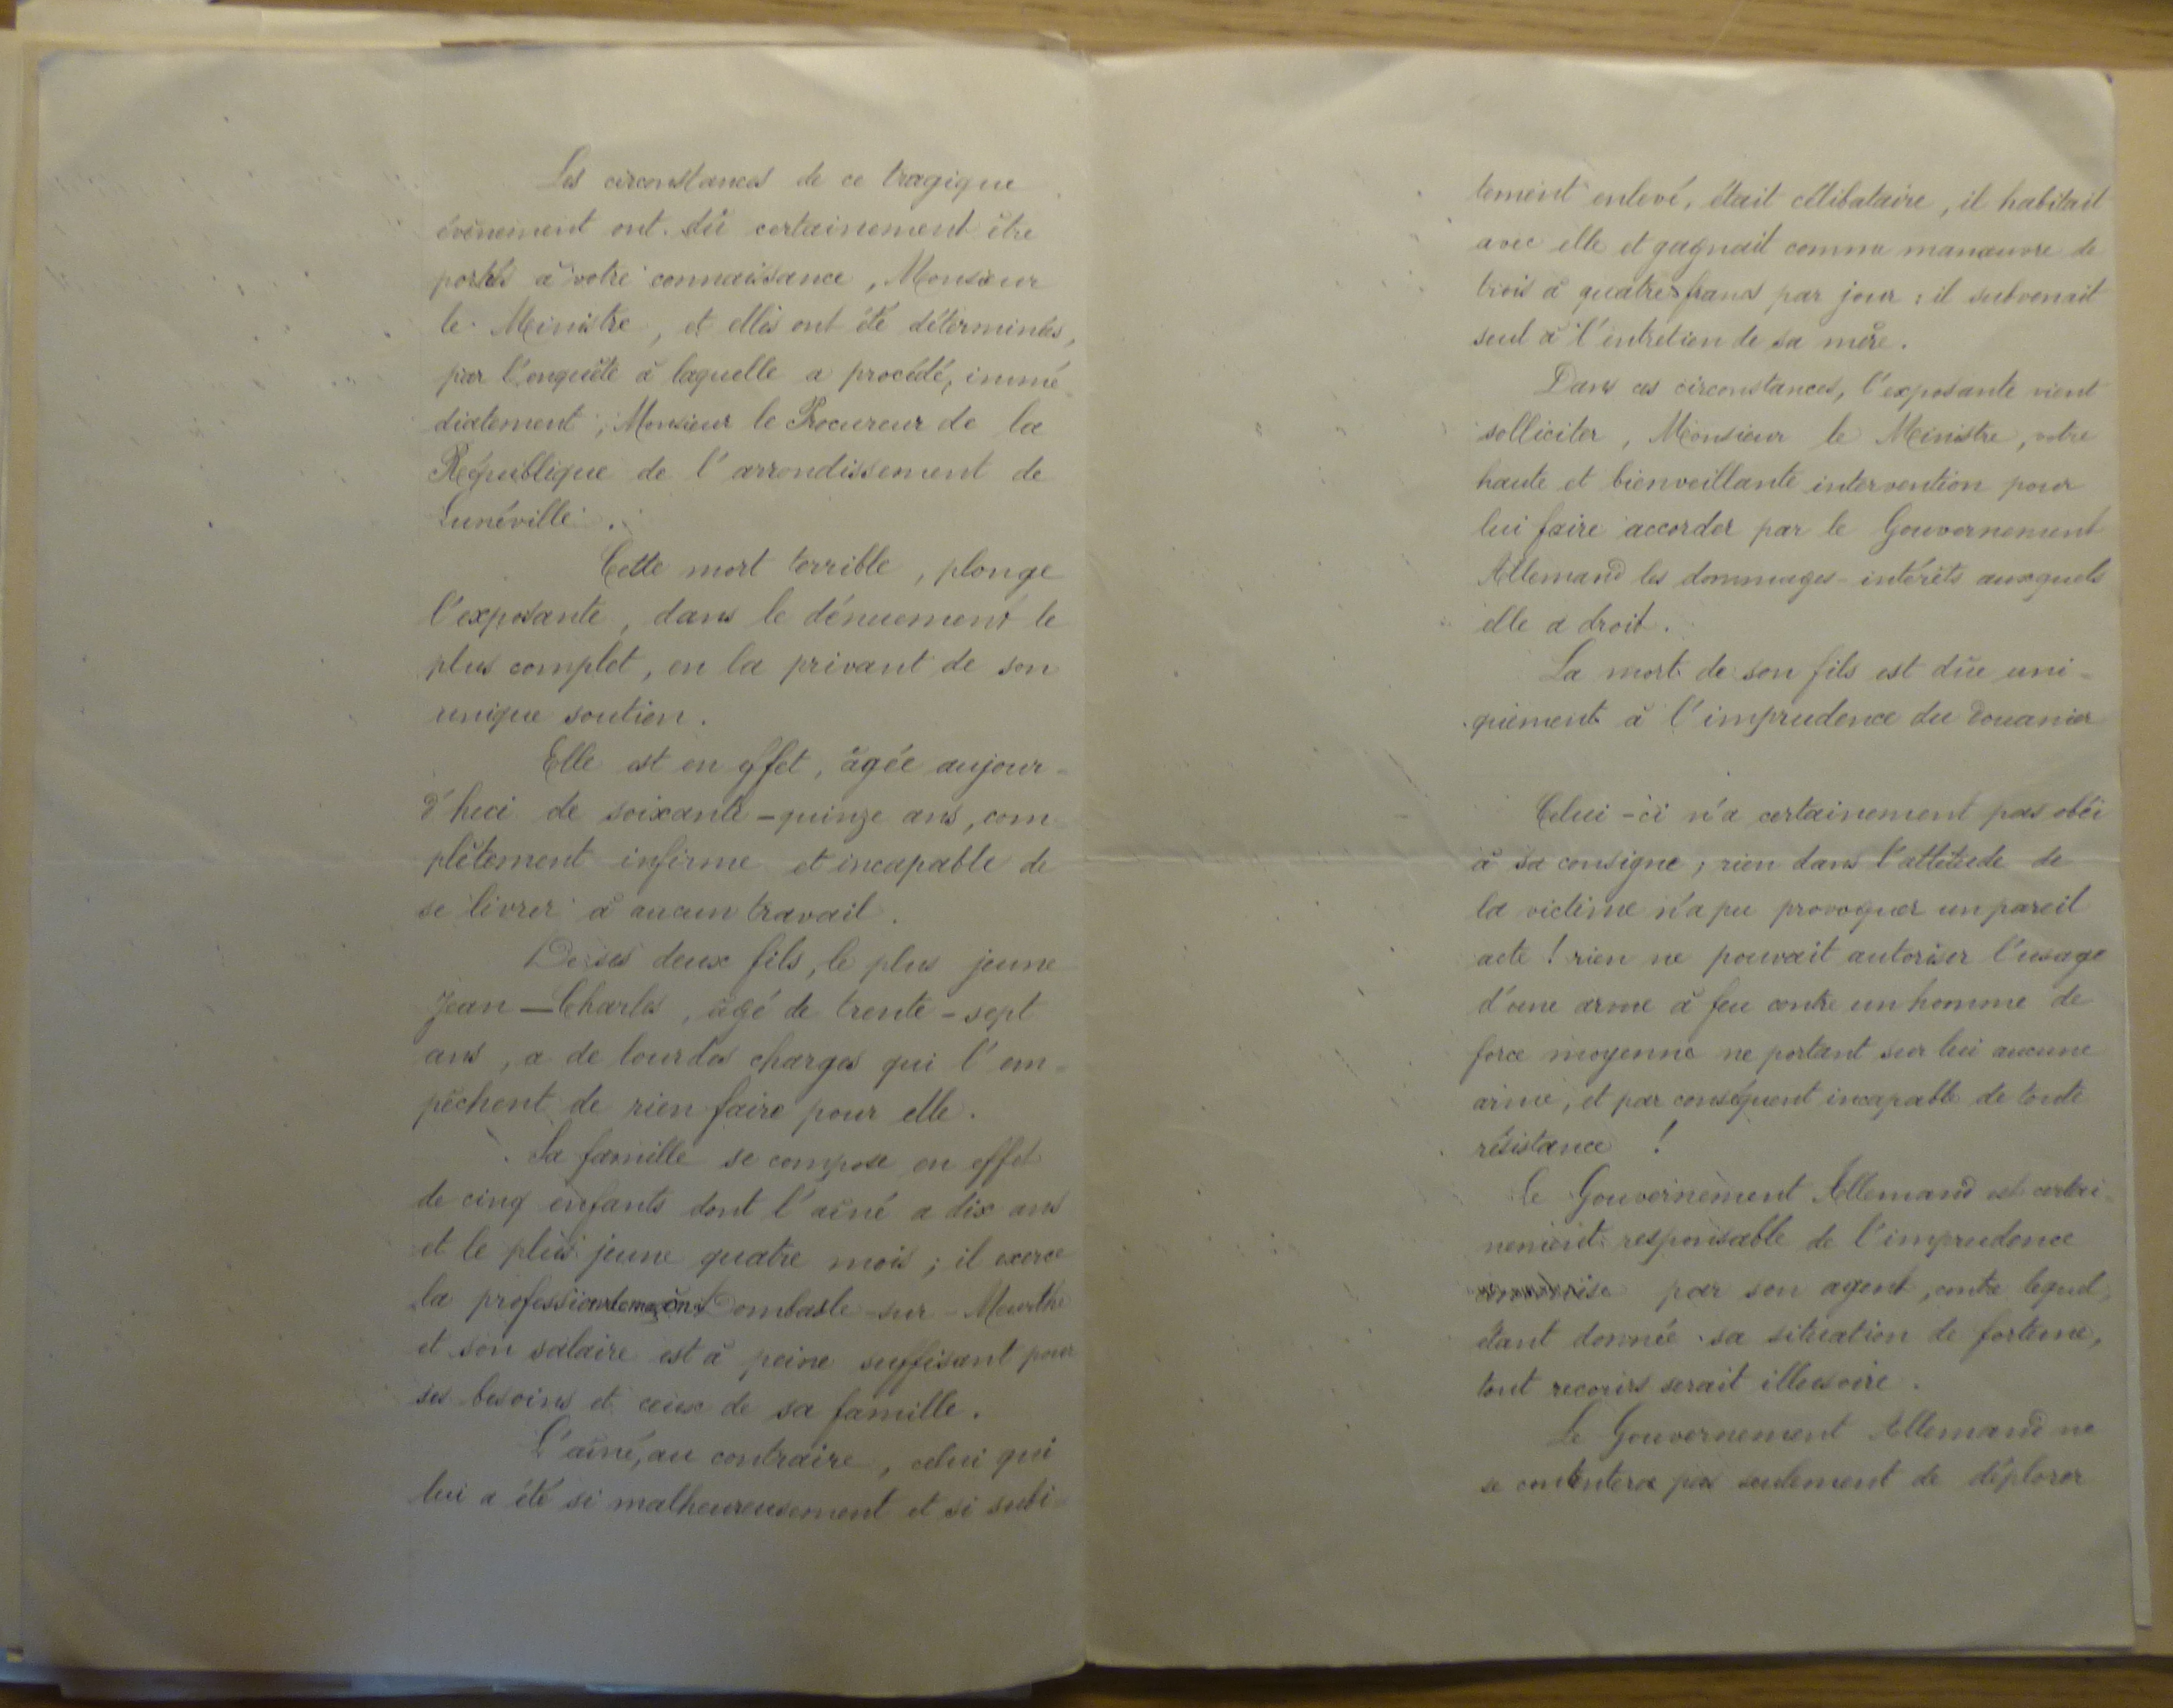 Les circonstances de ce tragique
évènement ont dû certainement être
portés à votre connaissance, Monsieur
le Ministre, et elles ont été déterminées,
par l'enquête à laquelle a procédé, immé-
diatement, Monsieur le Procureur de la
République de l'arrondissement de
Lunéville.
Cette mort terrible, plonge
l'exposante, dans le dénuement le
plus complet, en la privant de son
unique soutien.
Elle est en effet, âgée aujour-
d'hui de soixante-quinze ans, com-
plètement infirme et incapable de
se livrer à aucun travail.
De ses deux fils, le plus jeune
Jean-Charles, âgé de trente-sept
ans, a de lourdes charges qui l'em-
pêchent de rien faire pour elle.
Sa famille se compose en effet
de cinq enfants dont l'aîné a dix ans
et le plus jeune quatre mois; il exerce
la profession de maçon à Dombasle-sur-Meurthe
et son salaire est à peine suffisant pour
ses besoins et ceux de sa famille.
L'aîné, au contraire, celui qui
lui a été si malheureusement et si subi-
tement enlevé, était célibataire, il habitait
avec elle et gagnait comme manœuvre de
trois à quatre francs par jour: il subvenait
seul à l'entretien de sa mère.
Dans ces circonstances, l'exposante vient
solliciter, Monsieur le Ministre, votre
haute et bienveillante intervention pour
lui faire accorder par le Gouvernement
Allemand les dommages-intérêts auxquels
elle a droit.
La mort de son fils est dûe uni-
quement à l'imprudence du douanier
Celui-ci n'a certainement pas obéi
à sa consigne; rien dans l'attitude de
la victime n'a pu provoquer un pareil
acte! rien ne pouvait autoriser l'usage
d'une arme à feu contre un homme de
force moyenne ne portant sur lui aucune
arme, et par conséquent incapable de toute
résistance!
Le Gouvernement Allemand est certai-
nement responsable de l'imprudence
commise par son agent, contre lequel,
étant donnée sa situation de fortune,
tout recours serait illusoire.
Le Gouvernement Allemand ne
se contentera pas seulement de déplorer